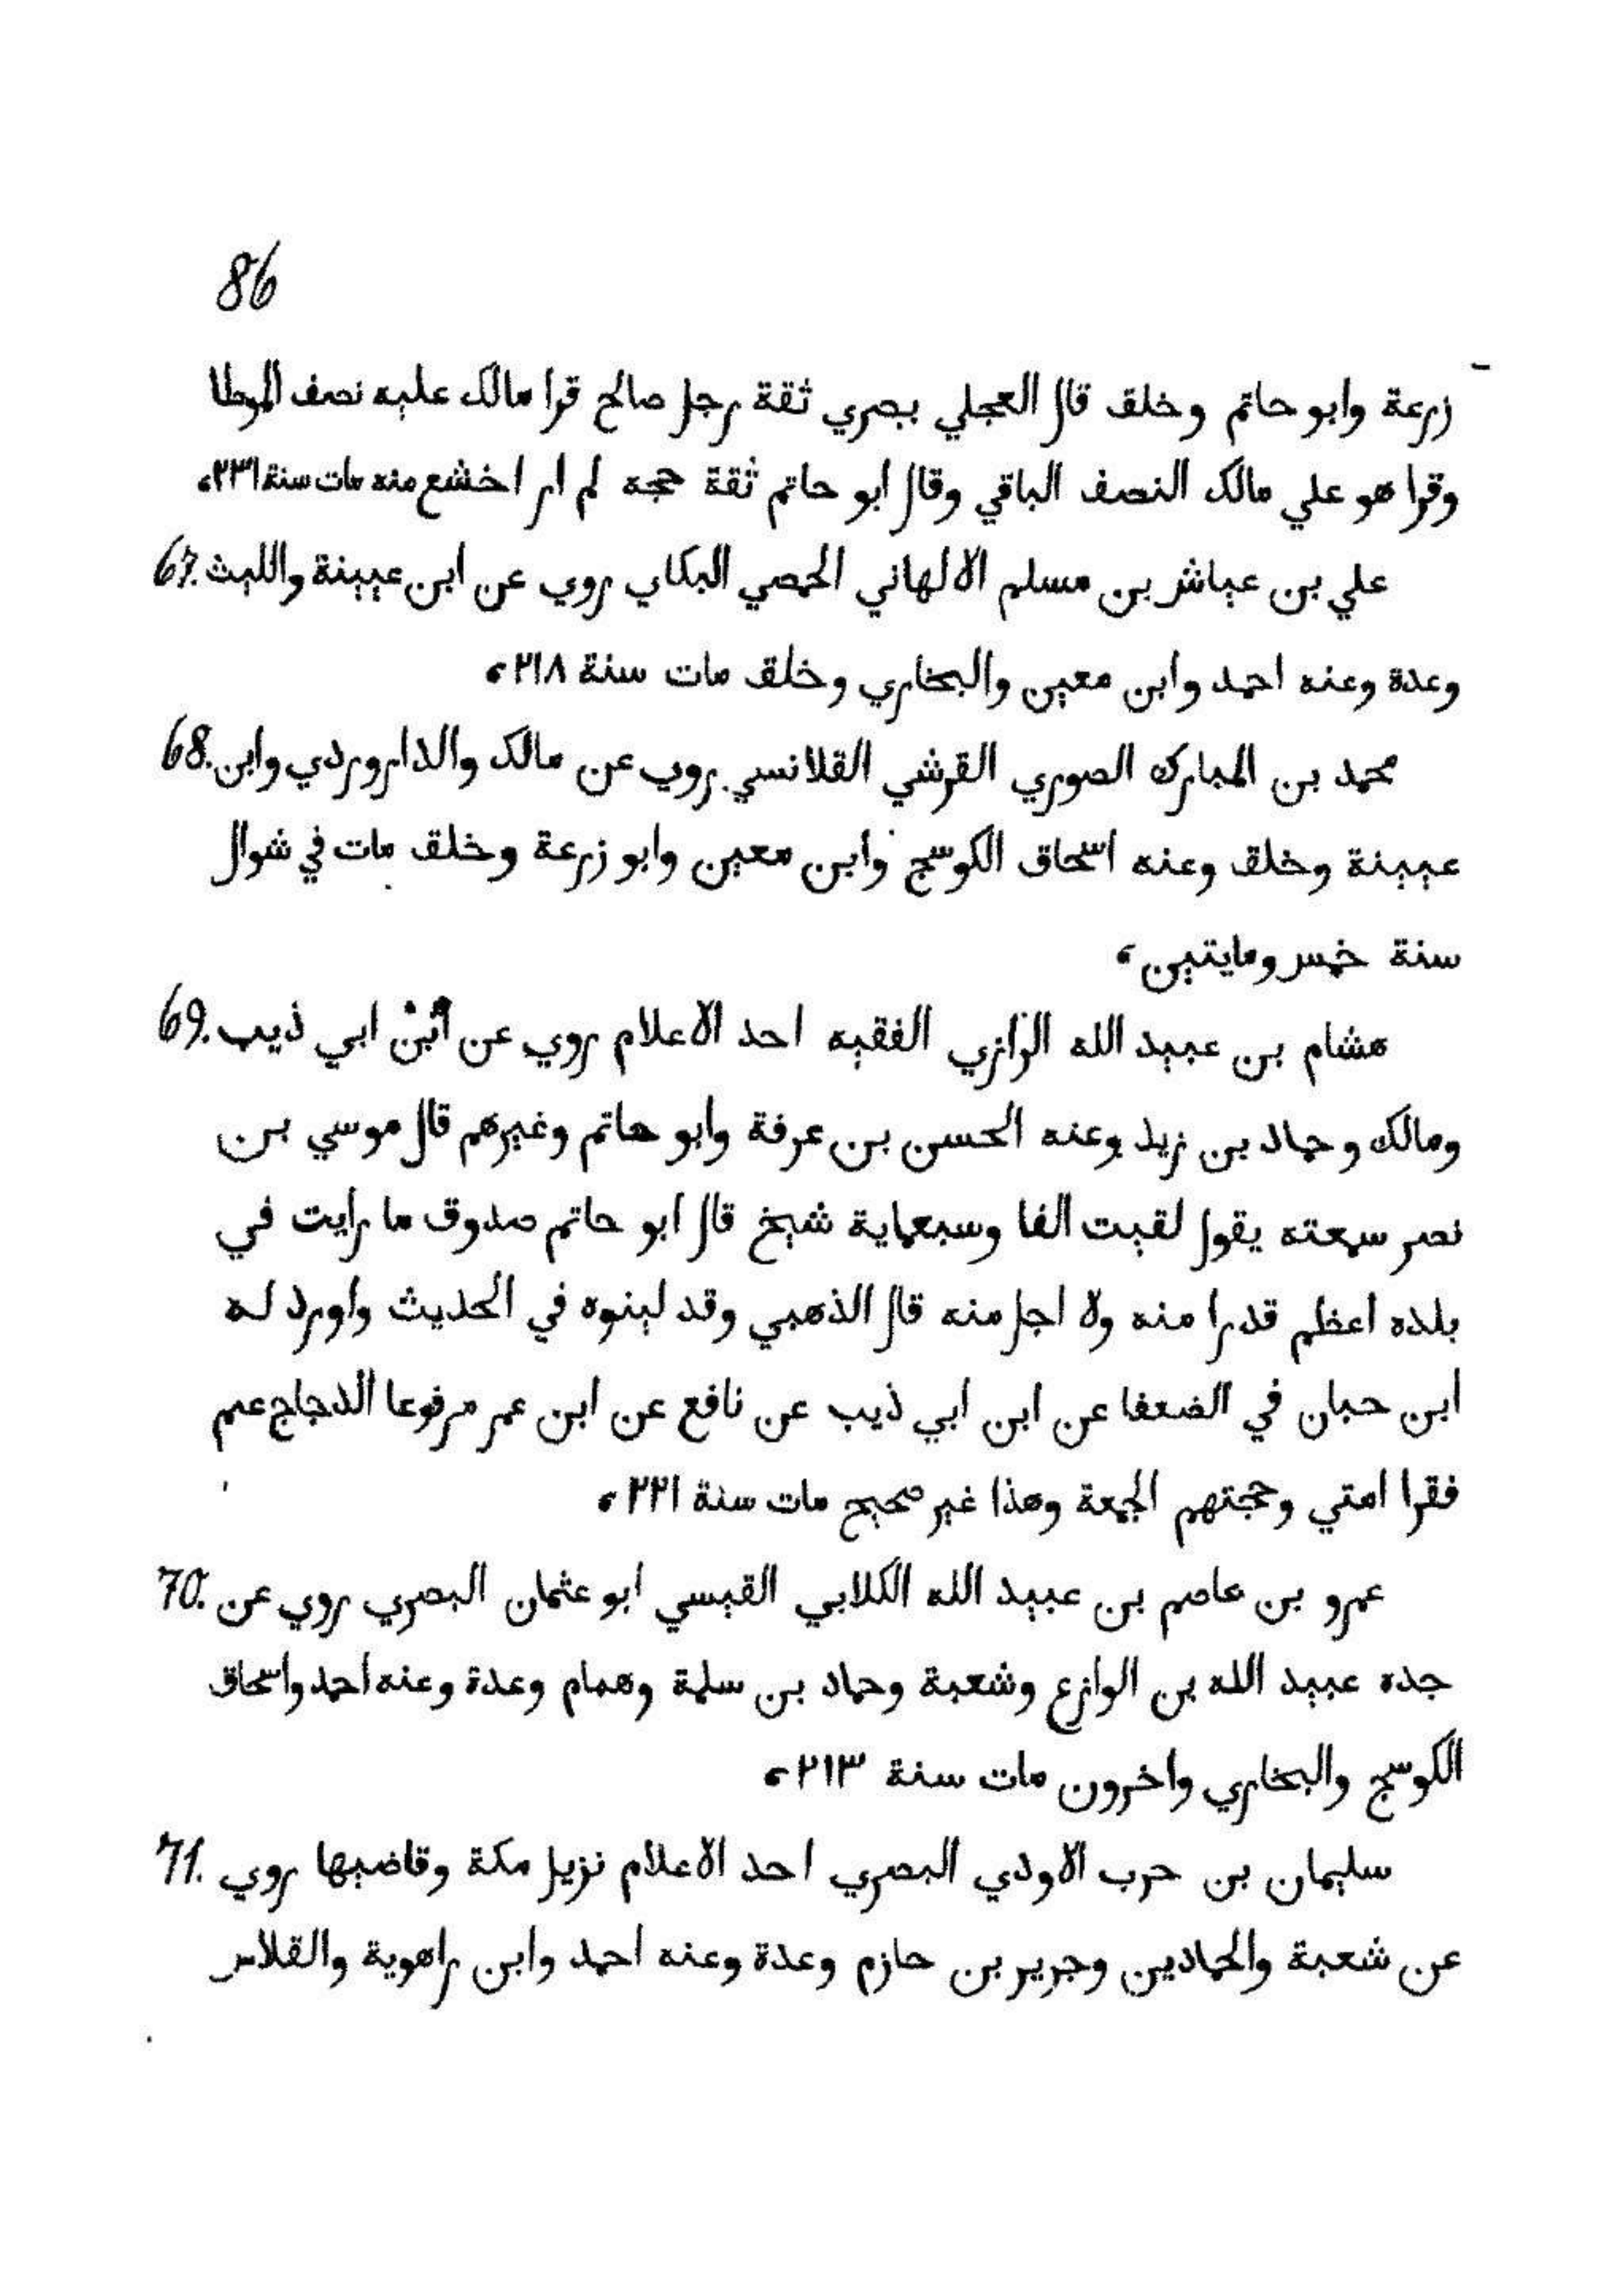 86
زرعة وابو حاتم وخلق قال العجلي بصري ثقة رجل صالح قرا مالك عليه نصف الموطا
وقرا هو علي مالك النصف الباقي وقال ابو حاتم ثقة حجه لم ار اخشع منه مات سنة ٢٣١ ،
67. علي بن عياش بن مسلم الالهاني الحمصي البكاي روي عن ابن عيينة والليث
وعدة وعنه احمد وابن معين والبخاري وخلق مات سنة ٢١٨ ،
68. محمد بن المبارك الصوري القرشي القلانسي روي عن مالك والداروردي وابن
عيينة وخلق وعنه اسحاق الكوسج وابن معين وابو زرعة وخلق مات في شوال
سنة خمس ومايتين ،
69. هشام بن عبيد الله الرازي الفقيه احد الاعلام روي عن ابن ابي ذيب
ومالك وحماد بن زيد وعنه الحسن بن عرفة وابو حاتم وغيرهم قال موسي بن
نصر سمعته يقول لقيت الفا وسبعماية شيخ قال ابو حاتم صدوق ما رايت في
بلده اعظم قدرا منه ولا اجل منه قال الذهبي وقد لينوه في الحديث واورد له
ابن حبان في الضعفا عن ابن ابي ذيب عن نافع عن ابن عمر مرفوعا الدجاج عم
فقرا امتي وحجتهم الجمعة وهذا غير صحيح مات سنة ٢٢١ ،
70. عمرو بن عاصم بن عبيد الله الكلابي القيسي ابو عثمان البصري روي عن
جده عبيد الله بن الوازع وشعبة وحماد بن سلمة وهمام وعدة وعنه احمد واسحاق
الكوسج والبخاري واخرون مات سنة ٢١٣ ،
71. سليمان بن حرب الاودي البصري احد الاعلام نزيل مكة وقاضيها روي
عن شعبة والحمادين وجرير بن حازم وعدة وعنه احمد وابن راهوية والقلاس